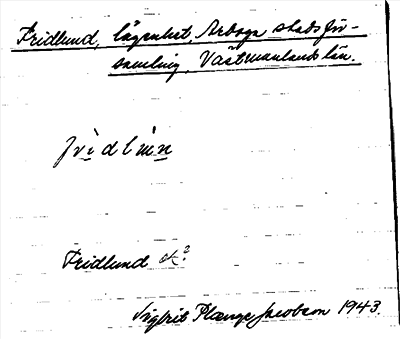 Fridlund, lägenhet, Arboga stadsför-
samling, Västmanlands län.
fridlun
Fridlund
Sigfrit Plænge Jacobson 1943.